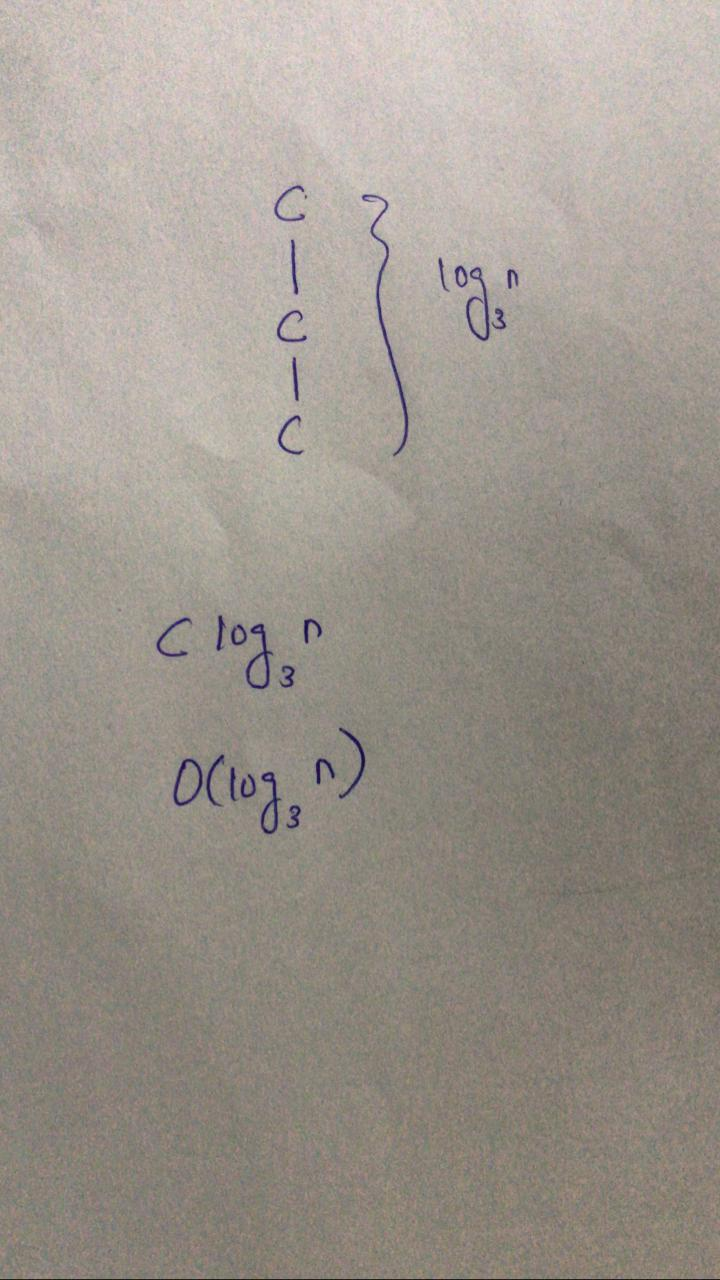 C
|
C } log₃ n
|
C
C log₃ n
O(log₃ n)